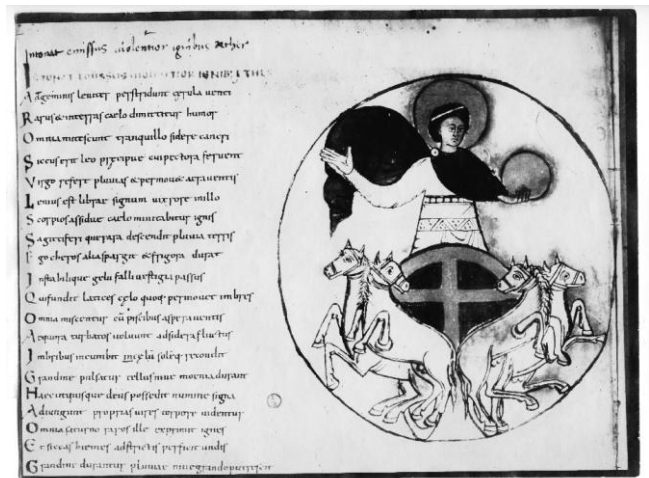 Intonat emissus violentior ignibus aether
INTONAT EMISSUS VIOLENTIOR IGNIB; ETHER
Ageminis leniter perstridunt cerula venti
Rarus & interras caelo dimittitur humor
Omnia mitescunt tranquillo sidere cancri
Siccus erit leo precipue cui pectora fervent
Virgo refert pluvias & permov& aera ventis
Lenius est librae signum vix rore millo
Scorpios assidue caelo minitabitur ignis
Sagitiferi descendit pluvia terris
Egocheros aliaspargit & frigora durat
Instabilique gelu falli vestigia passus
Qui fundit latices celo quoq; permovet imbres
Omnia miscentur cū piscibus aspera ventis
Aequora turbatos volvunt adsidera fluctus
Imbribus incumbit
Grandine pulsatur tellus nive moenia durant
Haec utquisque deus possedit numine signa
Adiungunt proprias vires corpore videntur
Omnia saturno raros ille exprimit ignes
Et siccas hiemes adstrictis perficit undis
Grandine durantur pluviae